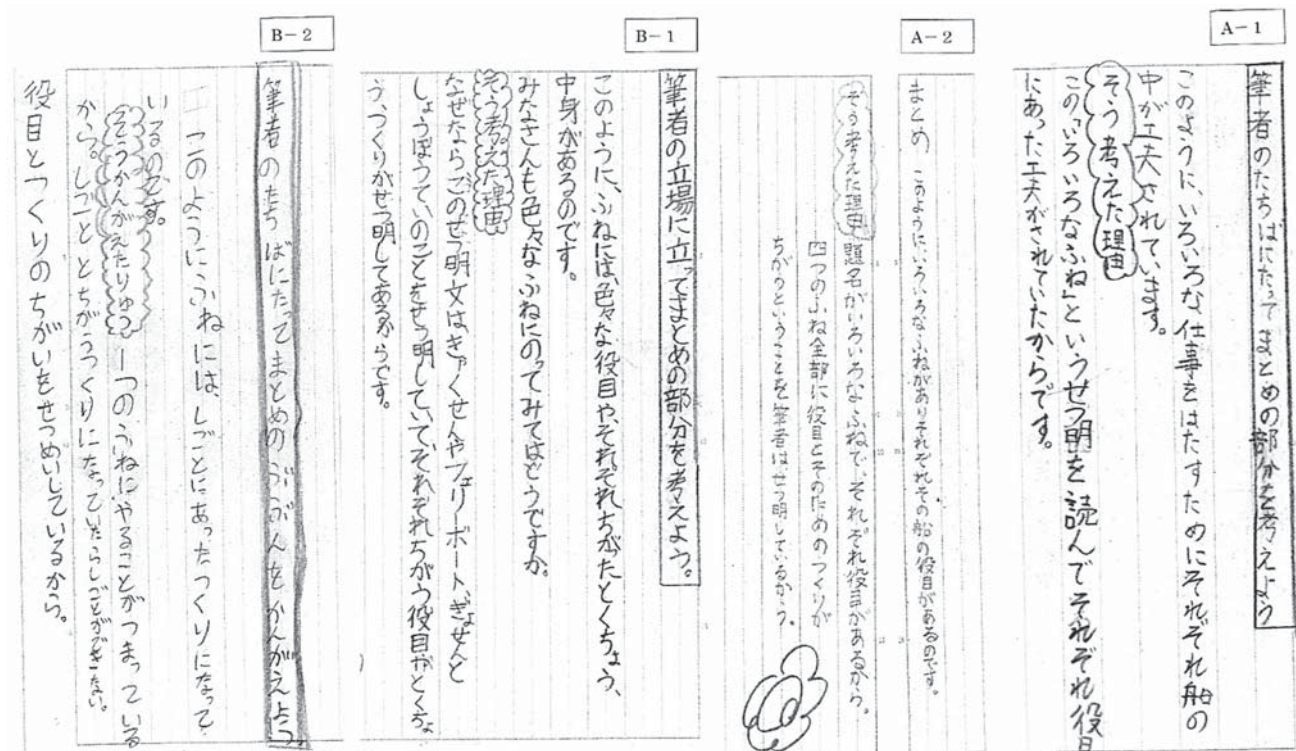 A-1
筆者のたちばにたってまとめの部分を考えよう
このように、いろいろな仕事をはたすためにそれぞれ船の
中が工夫されています。
そう考えた理由
この「いろいろなふね」というせつ明を読んでそれぞれ役目
にあった工夫がされていたからです。
A-2
まとめ このように、いろいろなふねがありそれぞれその船の役目があるのです。
そう考えた理由 題名がいろいろなふねで、それぞれ役目があるから。
四つのふね全部に役目とそのためのつくりが
ちがうということを筆者はせつ明しているから。
B-1
筆者の立場に立ってまとめの部分を考えよう。
このように、ふねには、色々な役目や、それぞれちがたとくちょう、
中身があるのです。
みなさんも色々なふねにのってみてはどうですか。
そう考えた理由
なぜなら、このせつ明文はきゃくせんやフェリーボート、ぎょせんと
しょうぼうていのことをせつ明していてそれぞれちがう役目やとくちょ
う、つくりがせつ明してあるからです。
B-2
筆者のたちばにたってまとめのぶぶんをかんがえよう
このようにふねには、しごとにあったつくりになって
いるのです。
そうかんがえたりゆう 一つのふねにやることがつまっている
から。しごととちがうつくりになっていたらしごとができない。
役目とつくりのちがいをせつめいしているから。